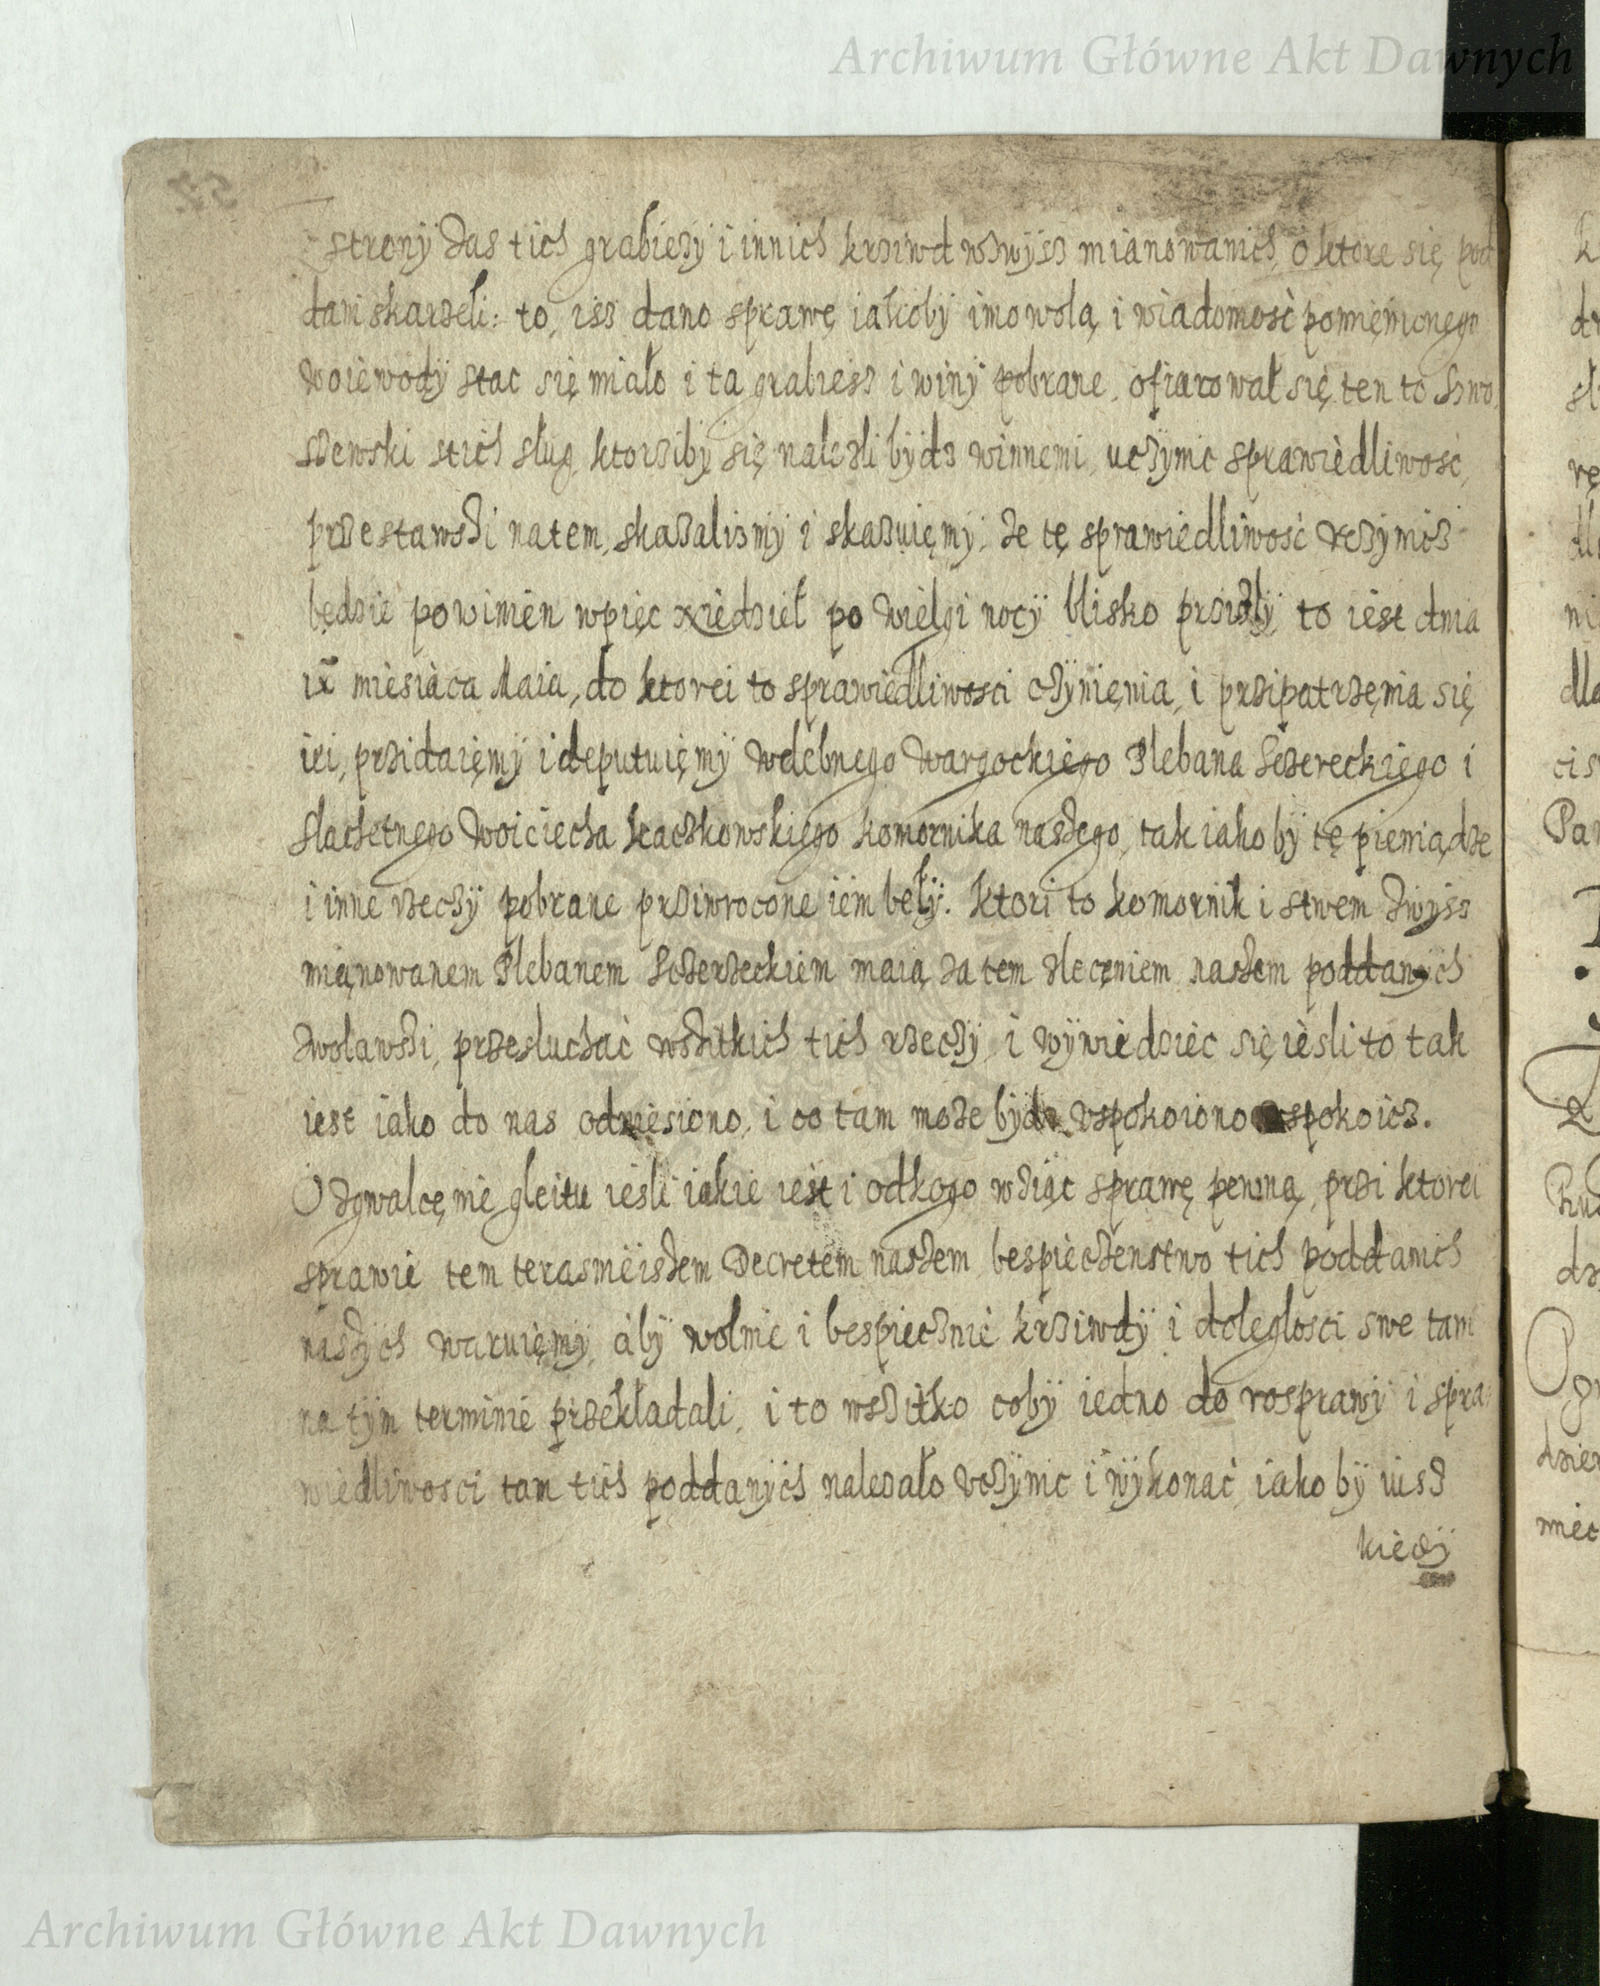 Archiwum Główne Akt Dawnych
strony zas tich grabieży i innich krziwd wzwyſz mianowanich, o ktore się pod
dani skarzeli: to, isz dano sprawę iakoby imo wolą i wiadomość pomięnionego
Woiewody stac się miało i ta grabiesz i winy pobrane, ofiarował się ten to
szewski stich sług, ktorziby się nalezli bydz winnemi, uczynic sprawiedliwosc,
przestawszi natem, skazalismy i skazuięmy, że tę sprawiedliwość vczynicz
będzie powinien wpięc niedziel po Wielgi nocy blisko przisły to iest dnia
ix miesiąca Maia, do ktorei to sprawiedliwosci czynięnia, i przipatrzęnia się
iei, przidaięmy i deputuięmy Wdebnego Wargockiego Plebana Sczereckiego i
slachetnego Woiciecha kaczkowskiego komornika naszego, tak iako by tę pieniądze
i inne rzeczy pobrane prziwrocone iem beły. ktori to komornik i stwem zwysz
mięnowanem Plebanem Sczerzeckiem maią za tem zlecęniem naszem poddanych
zwoławszi, przesluchać wszitkich tich rzeczy, i wywiedziec się iesli to tak
iest iako do nas odniesiono, i co tam może bydz vspokoiono uspokoicz.
O zgwalcęnie gleitu iesli iakie iest i odkogo wziąc sprawę pewną, przi ktorei
sprawie tem terasmeiszem Decretem naszem bespieczenstwo tich poddanich
naszych waruięmy, aby wolnie i bespiecznie krziwdy i dolęglosci swe tam
na tym terminie przekładali, i to wszitko coby iedno do rosprawy i spra
wiedliwosci tam tich poddanych nalezało vczynic i wykonać, iako by iusz
kiedy
Archiwum Główne Akt Dawnych